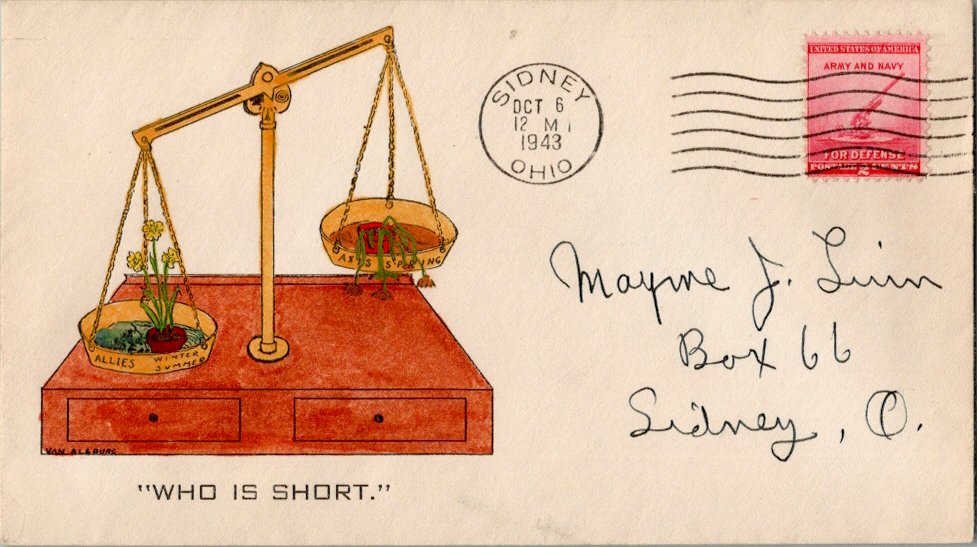 UNITED STATES OF AMERICA
ARMY AND NAVY
FOR DEFENSE
POSTAGE 2 CENTS
SIDNEY
OCT 6
12 M
1943
OHIO
AXIS SPRING
ALLIES WINTER
SUMMER
VAN ALSBURG
"WHO IS SHORT."
Mayme J. Linn
Box 66
Sidney, O.